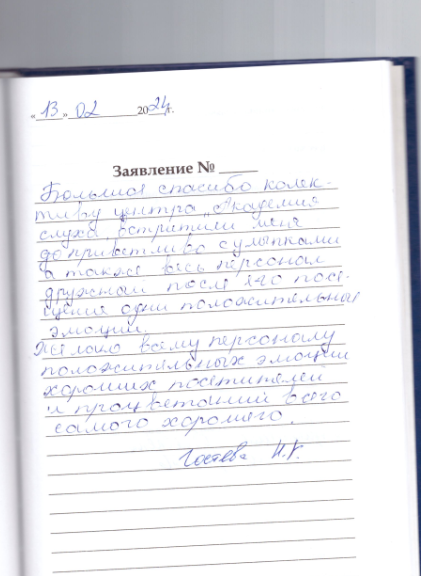 «13» 02 2024г.
Заявление №
Большое спасибо колек-
тиву центра „Академия
слуха, встретили меня
с улыпками
а также весь персонал
дружный после его посе-
щения одни положительные
эмоции.
Желаю всему персоналу
положительных эмоции
хороших посетителей
и процветаний всего
самого хорошего.